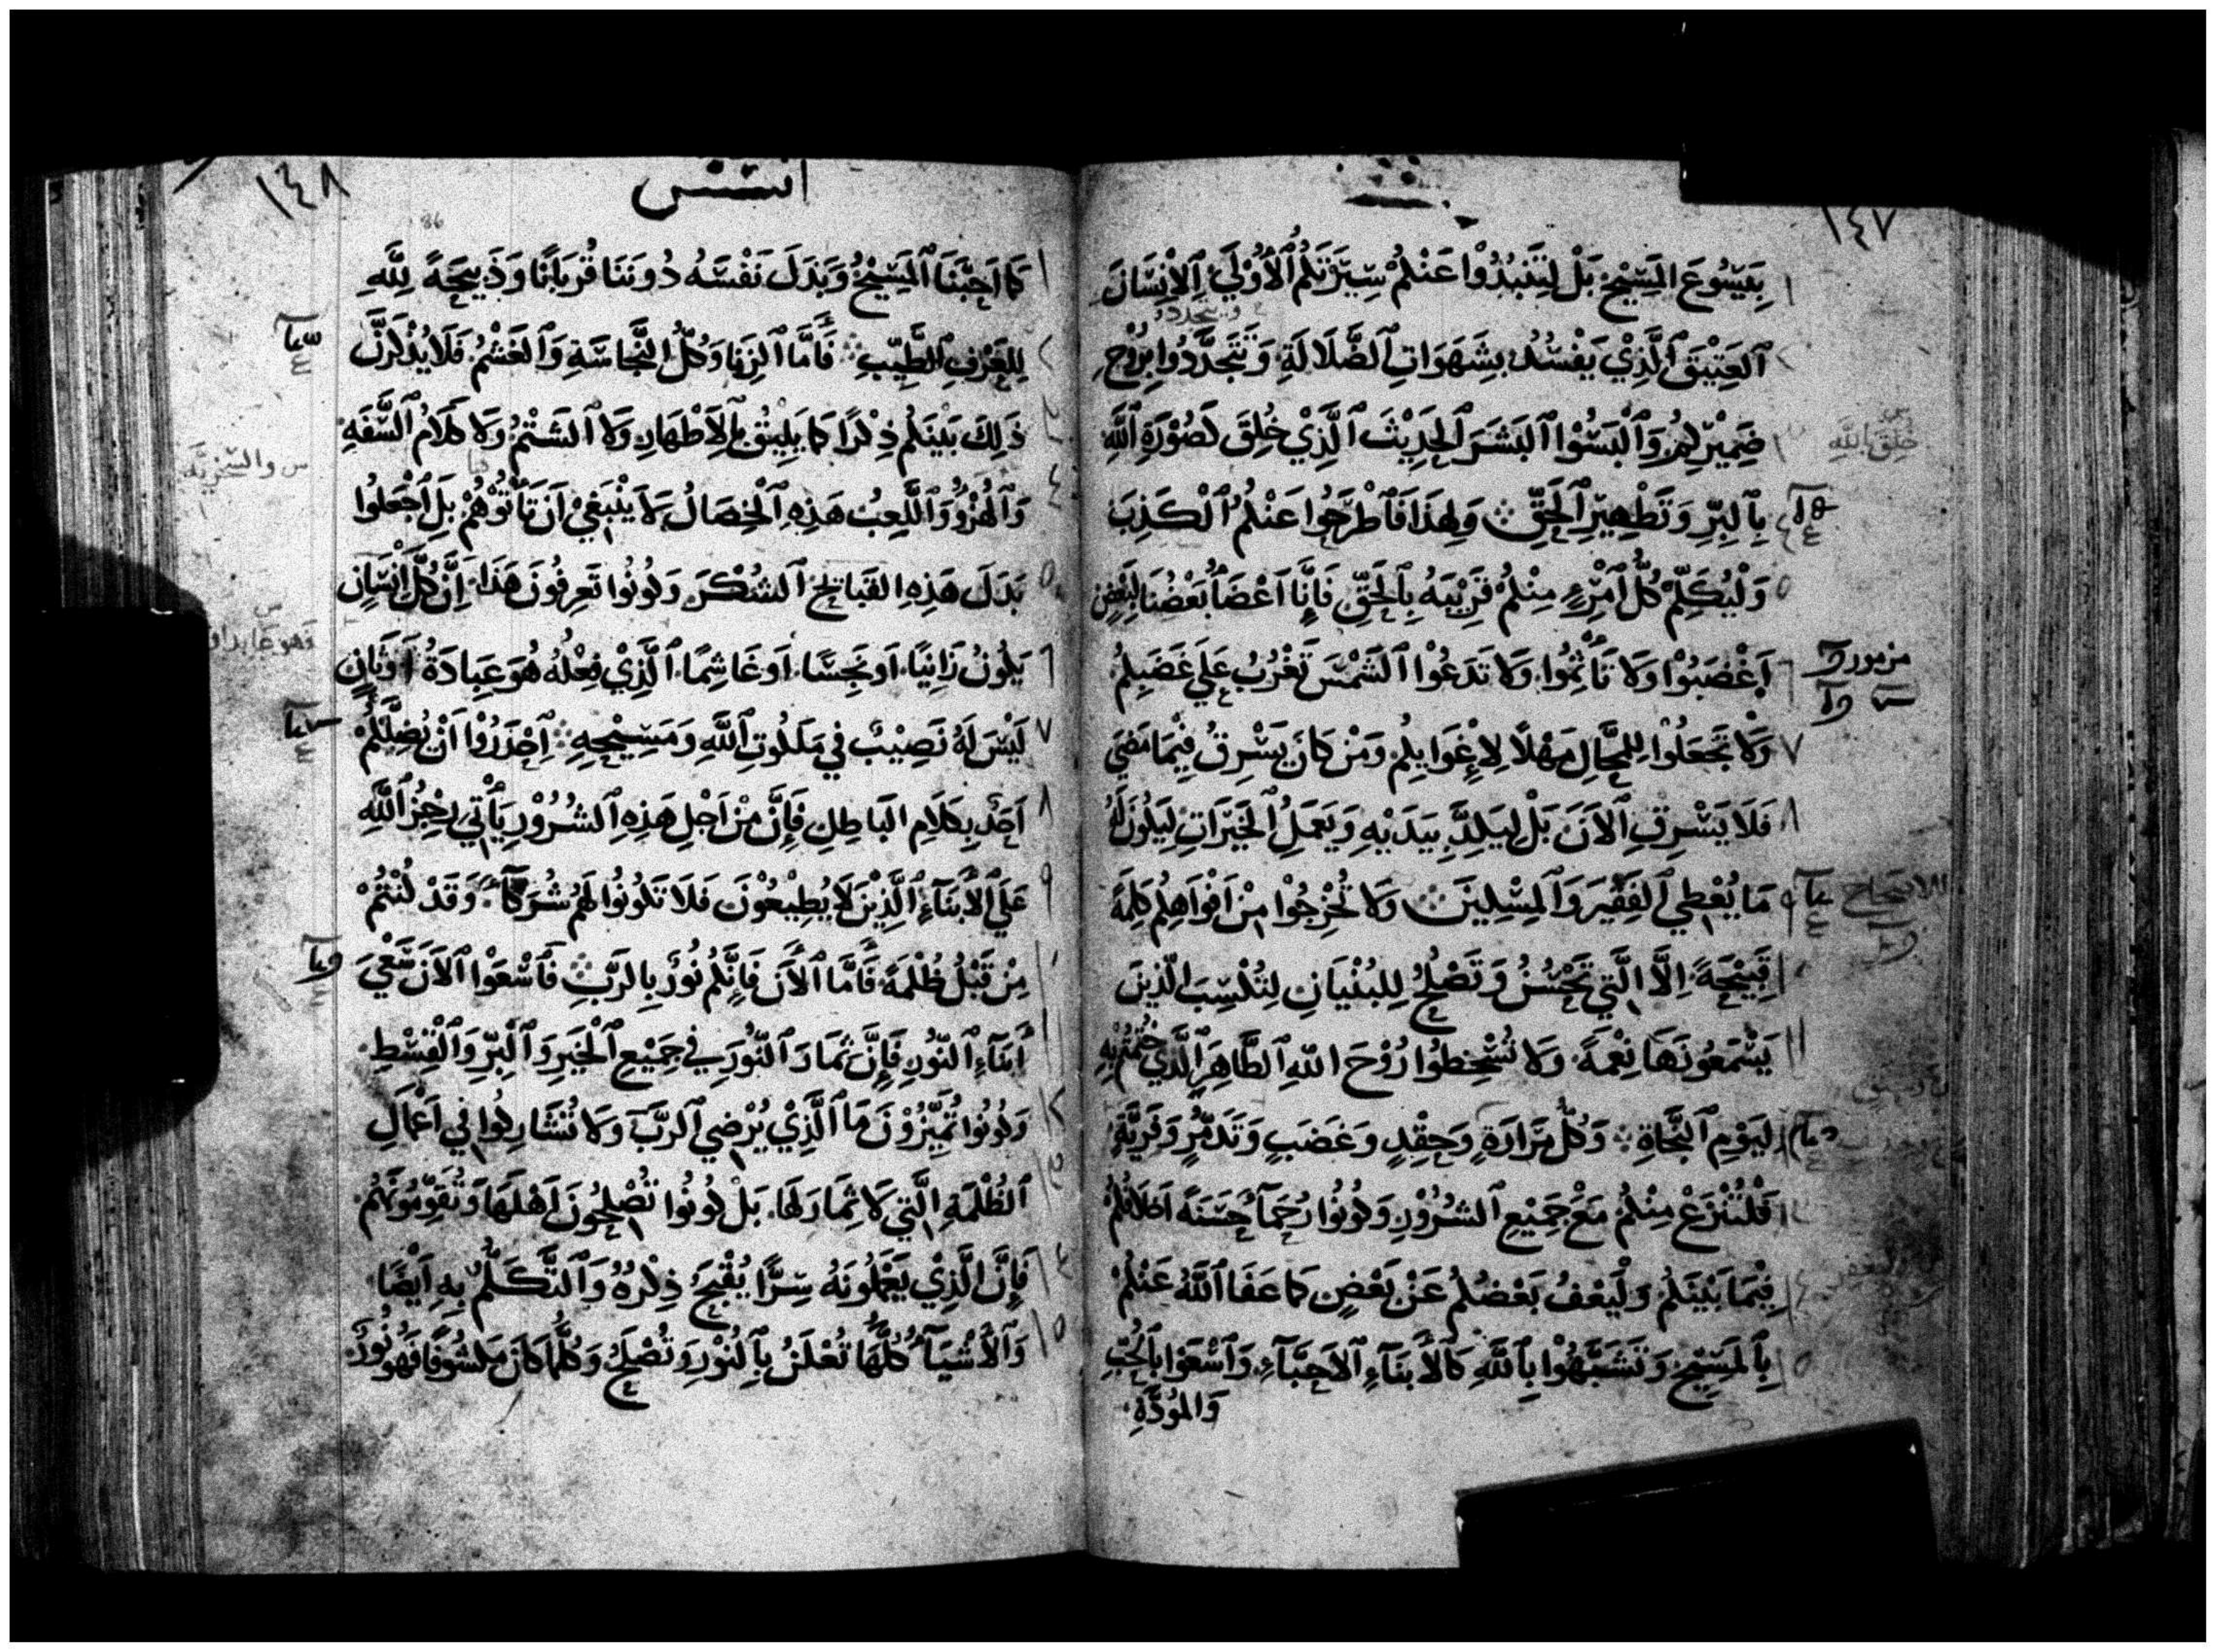 ١٤٧
بِيَسُوعَ المَسِيْحِ بَلْ لِتَنْبُذُوْا عَنْكُمْ سِيْرَتَكُمُ ٱلْأُوْلَي ٱلإِنْسَانَ
ٱلعَتِيْقَ ٱلَّذِيْ يَفْسُدُ بِشَهَوَاتِ ٱلضَّلَالَةِ وَتَتَجَدَّدُوا بِرُوْحِ
ضَمِيْرِكُمْ وَٱلْبَسُوْا ٱلبَشَرَ ٱلحَدِيْثَ ٱلَّذِيْ خُلِقَ كَصُوْرَةِ ٱللَّهِ
خُلِقَ بِاللَّهِ
بِٱلبِرِّ وَتَطْهِيْرِ ٱلحَقِّ وَلِهَذَا فَٱطْرَحُوا عَنْكُمُ ٱلْكَذِبَ
وَلْيُكَلِّمْ كُلُّ ٱمْرِئٍ مِنْكُمْ قَرِيْبَهُ بِٱلحَقِّ فَإِنَّا اَعْضَآءُ بَعْضُنَا لِبَعْضٍ
اَغْضَبُوْا وَلَا تَأْثَمُوا وَلَا تَدَعُوْا ٱلشَمْسَ تَغْرُبُ عَلَي غَضَبِكُمْ
مزمور
وَلَا تَجْعَلُوْا لِلمَحَّالِ مَهْلًا لِإِغْوَايِكُمْ وَمَنْ كَانَ يَسْرِقُ فِيْمَا مَضَي
فَلَا يَسْرِقِ ٱلآنَ بَلْ لِيَكِدَّ بِيَدَيْهِ وَيَعْمَلِ ٱلخَيْرَاتِ لِيَكُوْنَ لَهُ
مَا يُعْطِي ٱلفَقِيْرَ وَٱلمِسْكِيْنَ وَلَا تُخْرِجُوْا مِنْ اَفْوَاهِكُمْ كَلِمَةً
قَبِيْحَةً اِلَّا الَّتِي تَحْسُنُ وَتَصْلُحُ لِلبُنْيَانِ لِتُكْسِبَ الَّذِيْنَ
يَسْمَعُوْنَهَا نِعْمَةً وَلَا تُسْخِطُوْا رُوْحَ اللهِ ٱلطَّاهِرَ ٱلَّذِي خُتِمْتُمْ بِهِ
لِيَوْمِ ٱلنَّجَاةِ وَكُلُّ مَرَارَةٍ وَحِقْدٍ وَغَضَبٍ وَتَذَمُّرٍ وَفِرْيَةٍ
فَلْتُنْزَعْ مِنْكُمْ مَعْ جَمِيْعِ ٱلشُرُوْرِ وَكُوْنُوْا رُحَمَآ حَسَنَةً اَخْلَاقُكُمْ
فِيْمَا بَيْنَكُمْ وَلْيَعْفُ بَعْضُكُمْ عَنْ بَعْضٍ كَمَا عَفَا ٱللَّهُ عَنْكُمْ
بِٱلمَسِيْحِ وَتَشَبَّهُوْا بِٱللَّهِ كَالأَبنَآءِ ٱلاَحِبَّآءِ وَٱسْعَوْا بِٱلحُبِّ
وَالمَوَدَّةِ
١٤٨
افسس
86
كَمَا اَحَبَّنَا ٱلمَسِيْحُ وَبَذَلَ نَفْسَهُ دُونَنَا قُرْبَانًا وَذَبِيْحَةً لِلَّهِ
لِلعَرْفِ ٱلطَّيِّبِ فَأَمَّا ٱلزِنَا وَكُلُّ ٱلنَّجَاسَةِ وَٱلغَشْمُ فَلَا يُذْكَرَنَّ
ذَلِكَ بَيْنَكُمْ ذِكْرًا كَمَا يَلِيْقُ بِٱلاَطْهَارِ وَلَا ٱلشَتْمُ وَلَا كَلَامُ ٱلسَّفَهِ
س والسخريَّه
وَٱلهُزْؤُ وَٱللَّعِبُ هَذِهِ ٱلْخِصَالُ لَا يَنْبَغِيْ اَنْ تَأْتُوْهُمْ بَلِ ٱجْعَلُوا
بَدَلَ هَذِهِ القَبَايِحِ ٱلشُكْرَ وَكُوْنُوْا تَعرِفُوْنَ هَذَا اِنَّ كُلَّ اِنْسَانٍ
يَكُوْنُ زَانِيًا اَوْ نَجِسًا اَوْ غَاشِمًا ٱلَّذِيْ فِعْلُهُ هُوَ عِبَادَةُ اَوْثَانٍ
لَيْسَ لَهُ نَصِيْبٌ فِي مَلَكُوتِ ٱللَّهِ وَمَسِيْحِهِ اِحْذَرُوْا اَنْ يُضِلَّكُمْ
اَحَدٌ بِكَلَامِ البَاطِلِ فَإِنَّ مِنْ اَجْلِ هَذِهِ ٱلشُرُوْرِ يَأْتِي رِجْزُ ٱللَّهِ
عَلَي ٱلأَبْنَآءِ ٱلَّذِيْنَ لَا يُطِيْعُوْنَ فَلَا تَكُوْنُوْا لَهُمْ شُرَكَآءً وَقَدْ كُنْتُمْ
مِنْ قَبْلُ ظُلْمَةً فَأَمَّا ٱلآنَ فَإِنَّكُمْ نُوْرٌ بِالرَبِّ فَٱسْعَوْا ٱلآنَ سَعْيَ
أَبْنَآءِ ٱلنُّوْرِ فَإِنَّ ثِمَارَ ٱلنُّوْرِ فِي جَمِيْعِ ٱلْخَيْرِ وَٱلْبِرِّ وَٱلْقِسْطِ
وَكُوْنُوْا تُمَيِّزُوْنَ مَا ٱلَّذِيْ يُرْضِي ٱلرَبَّ وَلَا تُشَارِكُوا فِي اَعْمَالِ
ٱلظُلْمَةِ الَّتِي لَا ثِمَارَ لَهَا بَلْ كُوْنُوْا تُصْلِحُونَ اَهْلَهَا وَتُقَوِّمُوْنَهُمْ
فَإِنَّ الَّذِيْ يَعْمَلُوْنَهُ سِرًّا يُقْبَحُ ذِكْرُهُ وَٱلتَّكَلُّمُ بِهِ اَيْضًا
وَٱلأَشْيَآءُ كُلُّهَا تُعْلَنُ بِٱلنُوْرِ وَتُصْلَحُ وَكُلُّمَا كَانَ مَكْشُوْفًا فَهُوَ نُوْرٌ